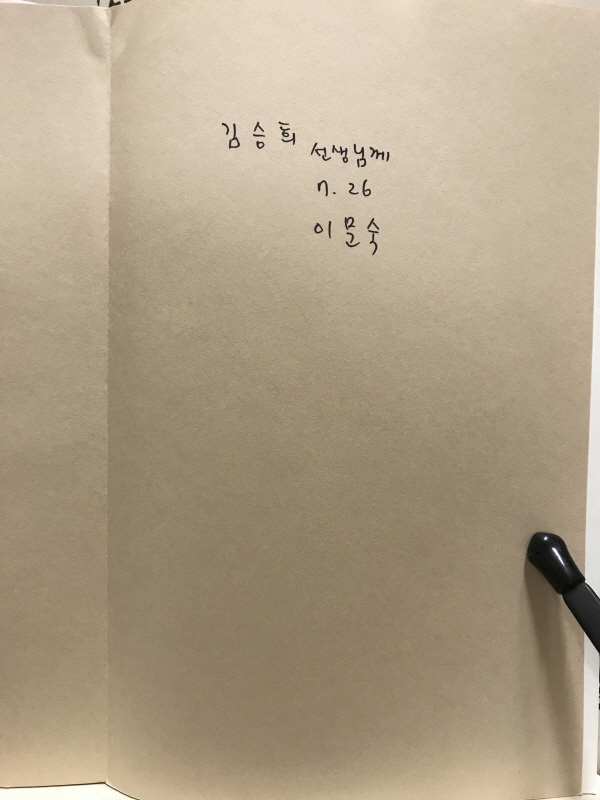 김승희 선생님께
7. 26
이문숙